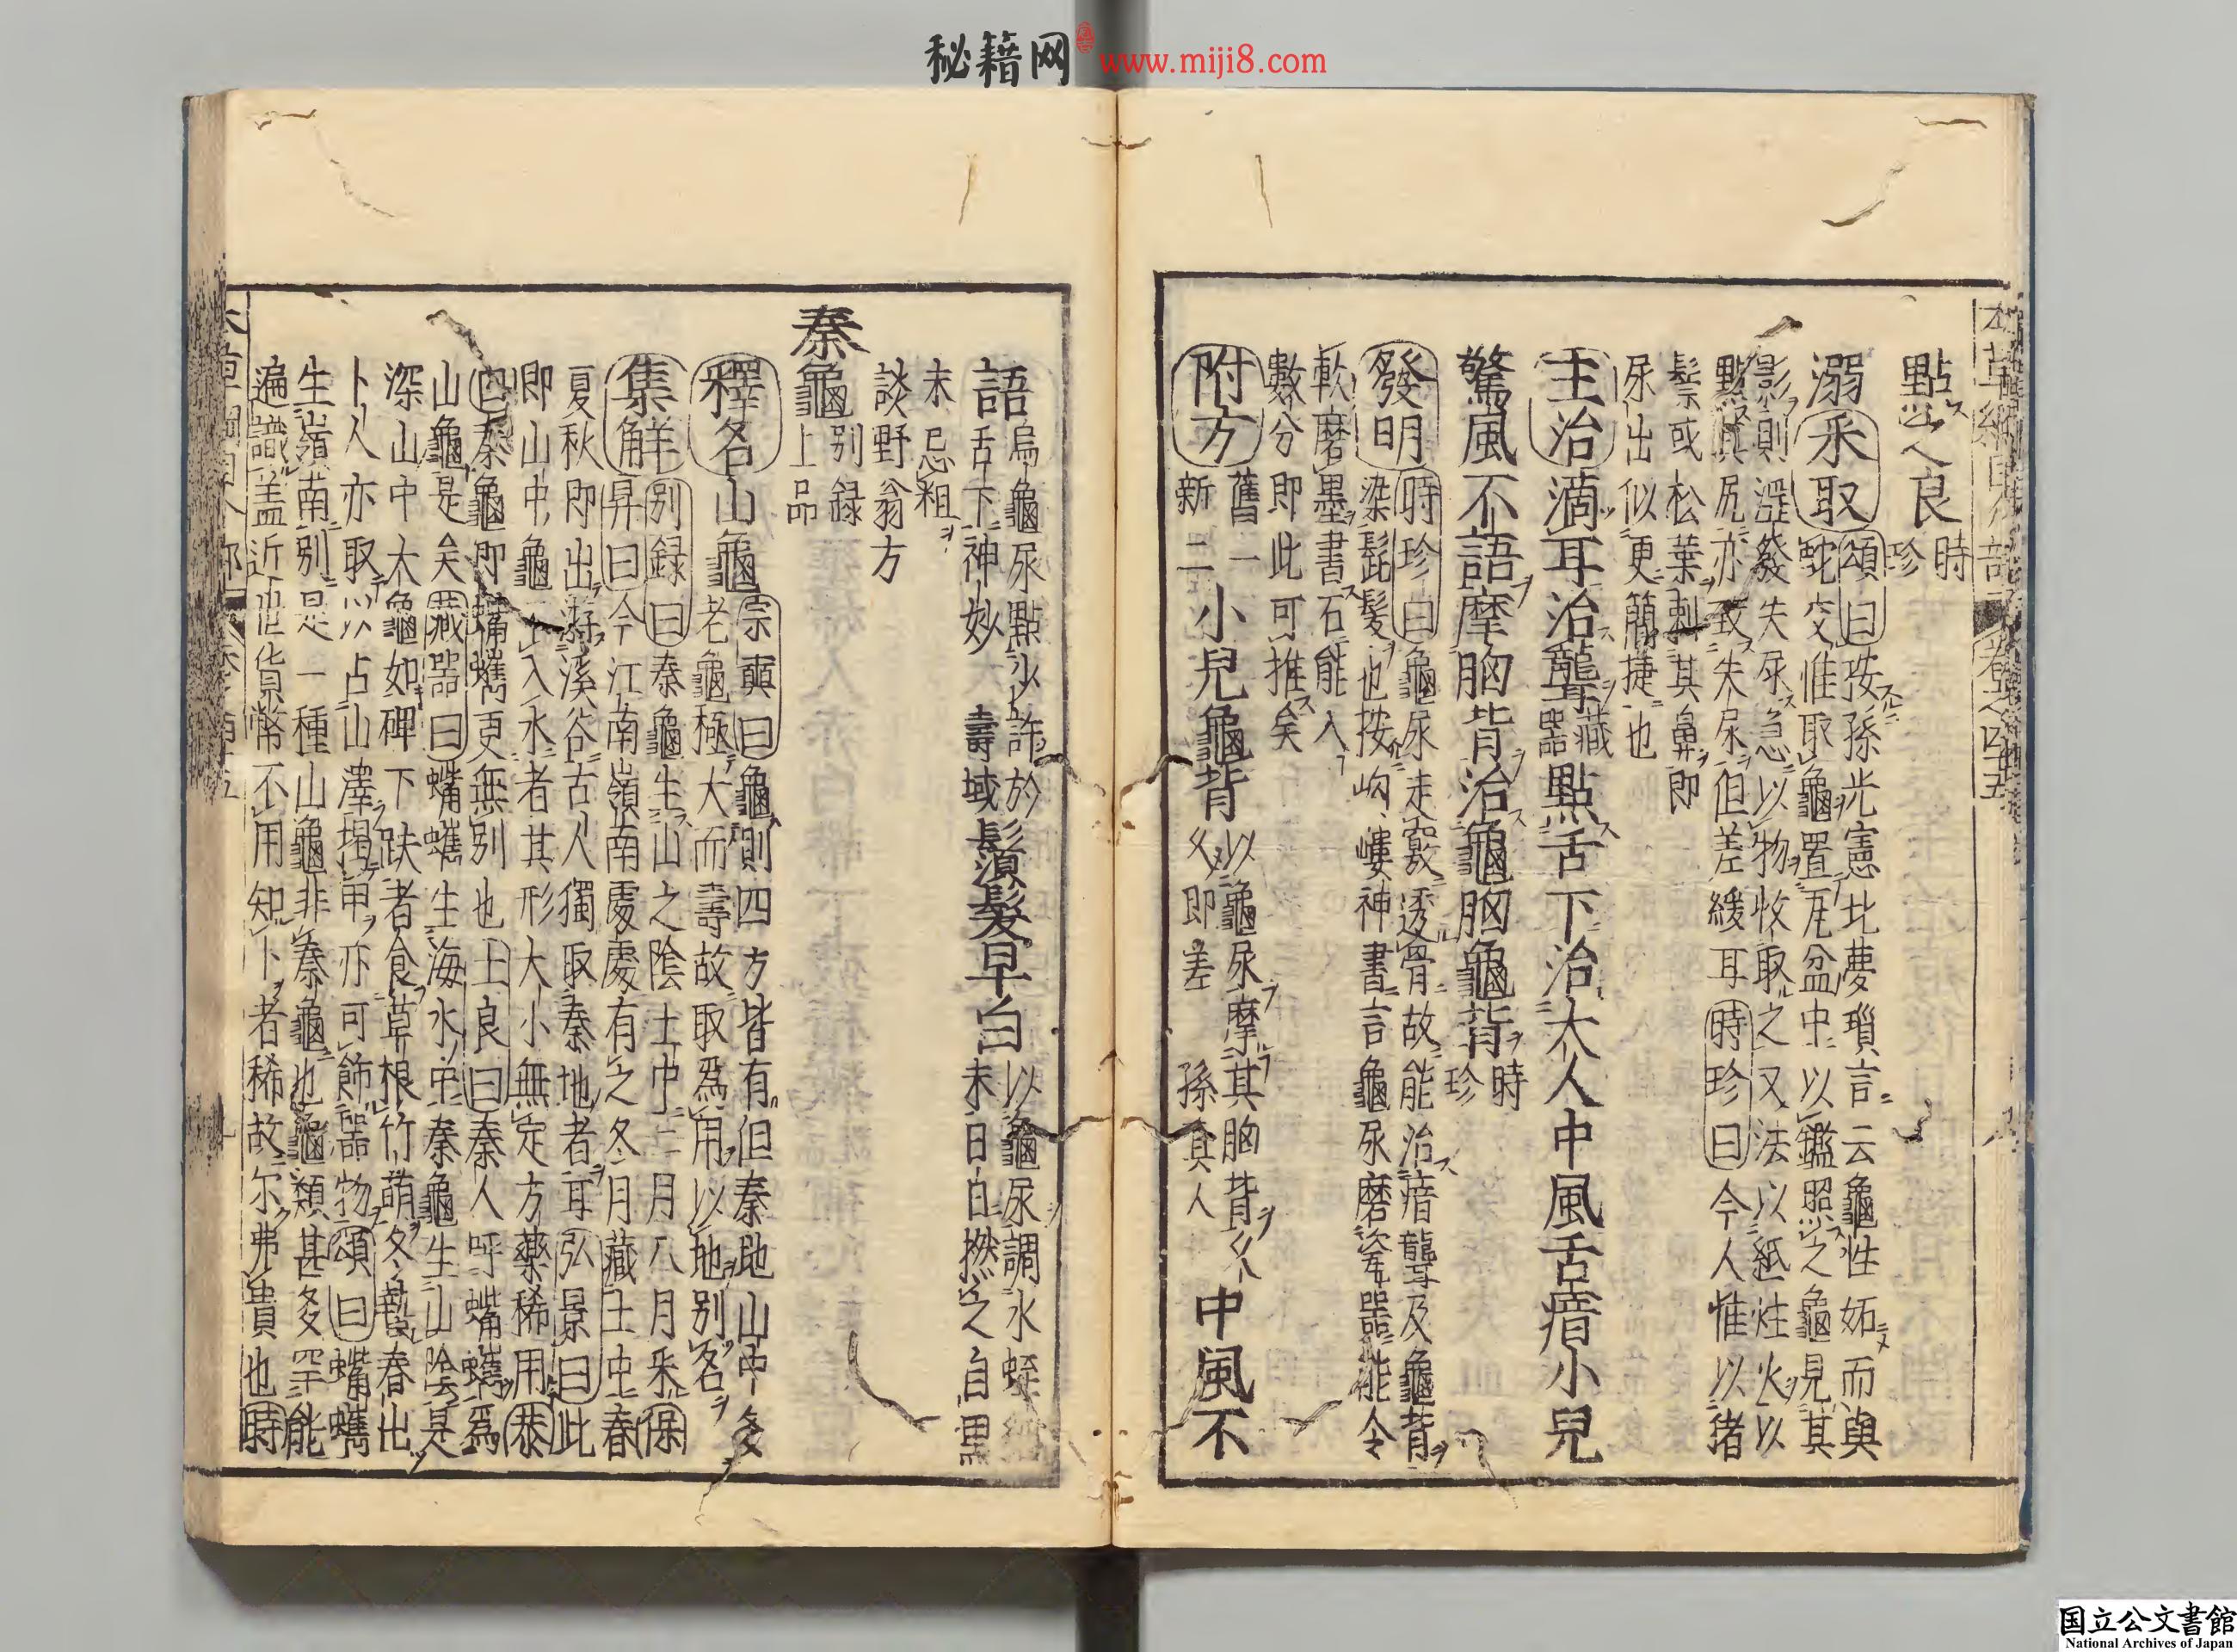 秘籍网 www.miji8.com
本草綱目介部 卷之四十五
點之良時珍
溺采取頌曰按孫光憲北夢瑣言云龜性妬而與
蛇交惟取龜置瓦盆中以鑑照之龜見其
影則淫發失尿急以物收取之又法以紙炷火以
點其尻亦致失尿但差緩耳時珍曰今人惟以猪
鬃或松葉刺其鼻即
尿出似更簡捷也
主治滴耳治聾藏器點舌下治大人中風舌瘖小兒
驚風不語摩胸背治龜胸龜背時珍
發明時珍曰龜尿走竅透骨故能治瘖聾及龜背
染髭髮也按岣嶁神書言龜尿磨瓷器能令
軟磨墨書石能入
數分即此可推矣
附方舊一新二小兒龜背以龜尿摩其胸背久久即差孫真人中風不
語烏龜尿點少許於舌下神妙壽域鬚髮早白以龜尿調水蛭細
末日日撚之自黑
末忌粗
談野翁方
秦龜别録上品
釋名山龜宗奭曰龜則四方皆有但秦地山中多
老龜極大而壽故取爲用以地别名
集解别録曰秦龜生山之陰土中二月八月采保
昇曰今江南嶺南處處有之冬月藏土中春
夏秋即出游溪谷古人獨取秦地者耳弘景曰此
即山中龜不入水者其形大小無定方藥稀用恭
曰秦龜即蠵蠵更無别也士良曰秦人呼蠵蠵爲
山龜是矣藏器曰蠵蠵生海水中秦龜生山陰是
深山中大龜如碑下趺者食草根竹萌冬蟄春出
卜人亦取以占山澤揭甲亦可飾器物頌曰蠵蠵
生嶺南别是一種山龜非秦龜也龜類甚多罕能
遍識蓋近世貨幣不用知卜者稀故尔弗貴也時
国立公文書館
National Archives of Japan